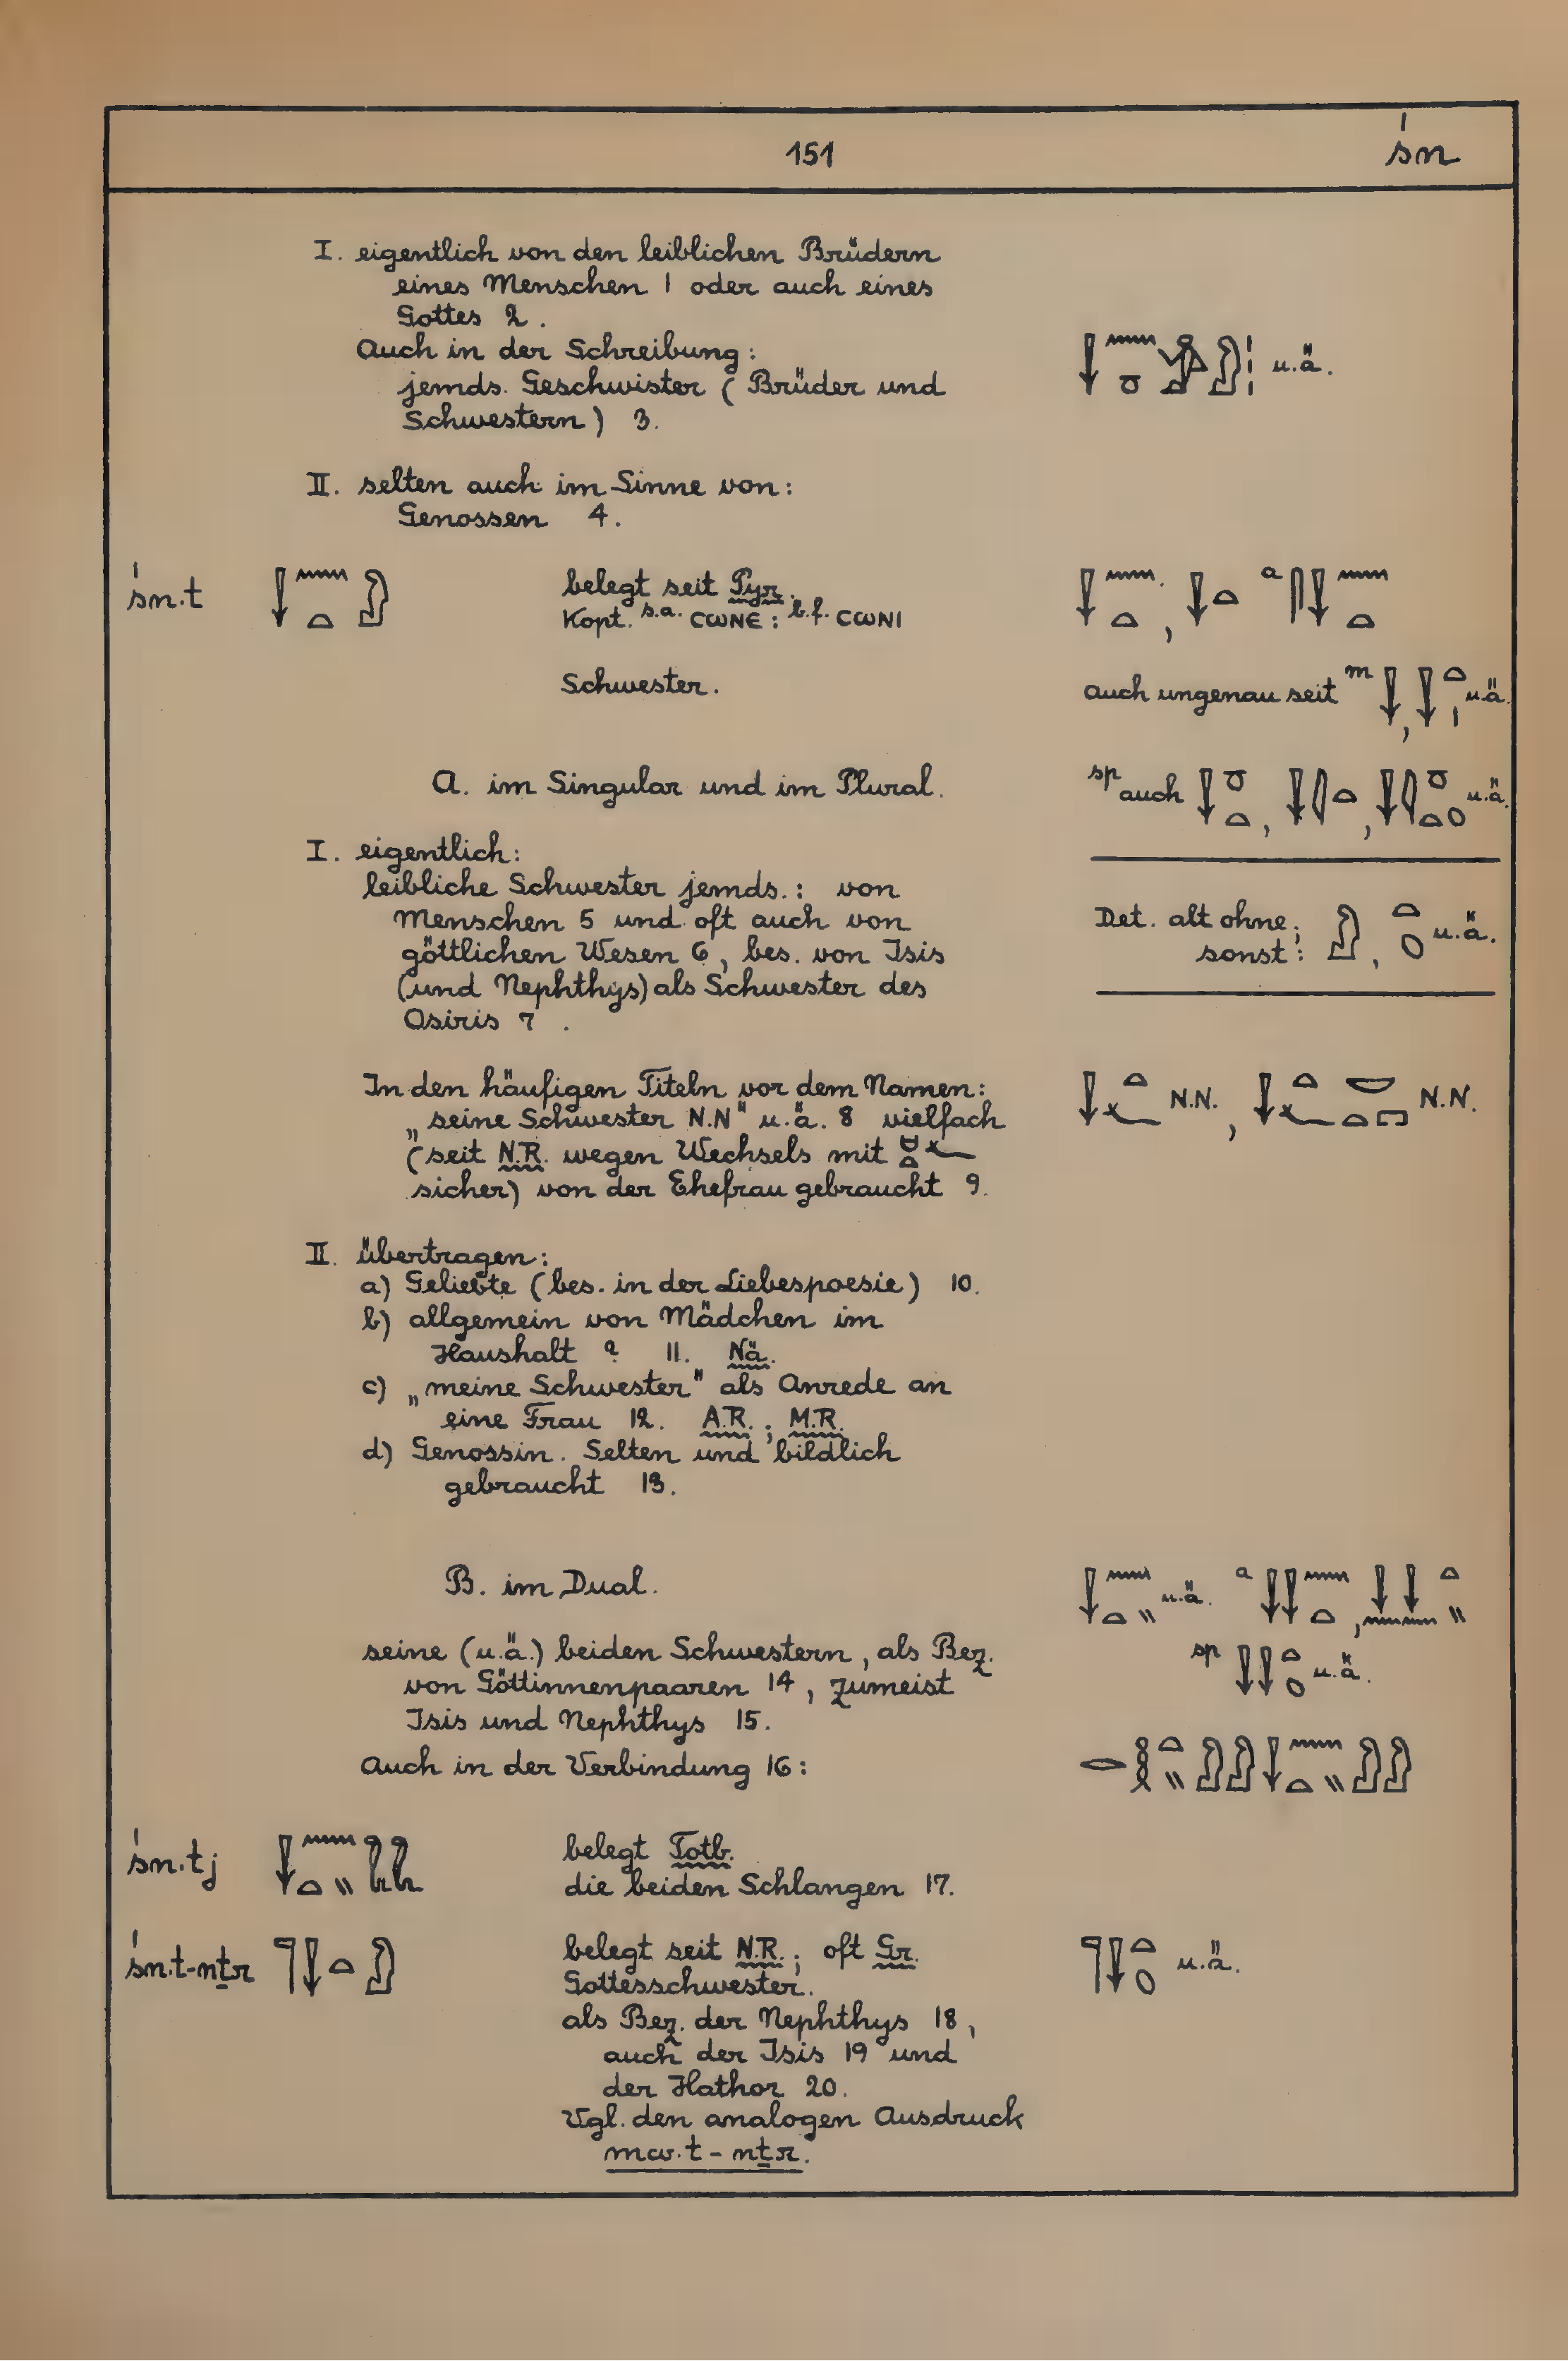 151
śn
I. eigentlich von den leiblichen Brüdern
eines Menschen 1 oder auch eines
Gottes 2.
Auch in der Schreibung: u.ä.
jemds. Geschwister (Brüder und
Schwestern) 3.
II. selten auch im Sinne von:
Genossen 4.
śn.t 𓌢𓈖𓏏𓁐 belegt seit Pyr. 𓌢𓈖𓏏, 𓌢𓏏 a 𓋴𓌢𓈖𓏏
Kopt. s.a. ⲤⲰⲚⲈ: b.f. ⲤⲰⲚⲒ
Schwester. auch ungenau seit m 𓌢, 𓌢𓏏𓏤 u.ä.
A. im Singular und im Plural. sp auch u.ä.
I. eigentlich:
leibliche Schwester jemds.: von
Menschen 5 und oft auch von
göttlichen Wesen 6, bes. von Isis
(und Nephthys) als Schwester des
Osiris 7.
Det. alt ohne;
sonst: 𓁐, 𓏏𓆇 u.ä.
In den häufigen Titeln vor dem Namen: 𓌢𓏏𓆑 N.N., 𓌢𓏏𓆑𓎟𓏏𓉐 N.N.
„seine Schwester N.N" u.ä. 8 vielfach
(seit N.R. wegen Wechsels mit 𓈞𓏏𓆑
sicher) von der Ehefrau gebraucht 9.
II. übertragen:
a) Geliebte (bes. in der Liebespoesie) 10.
b) allgemein von Mädchen im
Haushalt ? 11. Nä.
c) „meine Schwester" als Anrede an
eine Frau 12. A.R.; M.R.
d) Genossin. Selten und bildlich
gebraucht 13.
B. im Dual. 𓌢𓈖𓏏𓏭 u.ä. a 𓌢𓌢𓈖𓏏, 𓌢𓌢𓈖𓈖𓏏𓏭
seine (u.ä.) beiden Schwestern, als Bez. sp 𓌢𓌢𓏏𓆇 u.ä.
von Göttinnenpaaren 14, zumeist
Isis und Nephthys 15.
Auch in der Verbindung 16: 𓂋𓎛𓏏𓏭𓁐𓁐𓌢𓈖𓏏𓏭𓁐𓁐
śn.tj 𓌢𓈖𓏏𓏭𓆗𓆗 belegt Totb.
die beiden Schlangen 17.
śn.t-nṯr 𓊹𓌢𓏏𓁐 belegt seit N.R.; oft Gr. 𓊹𓌢𓏏𓆇 u.ä.
Gottesschwester.
als Bez. der Nephthys 18,
auch der Isis 19 und
der Hathor 20.
Vgl. den analogen Ausdruck
mw.t-nṯr.